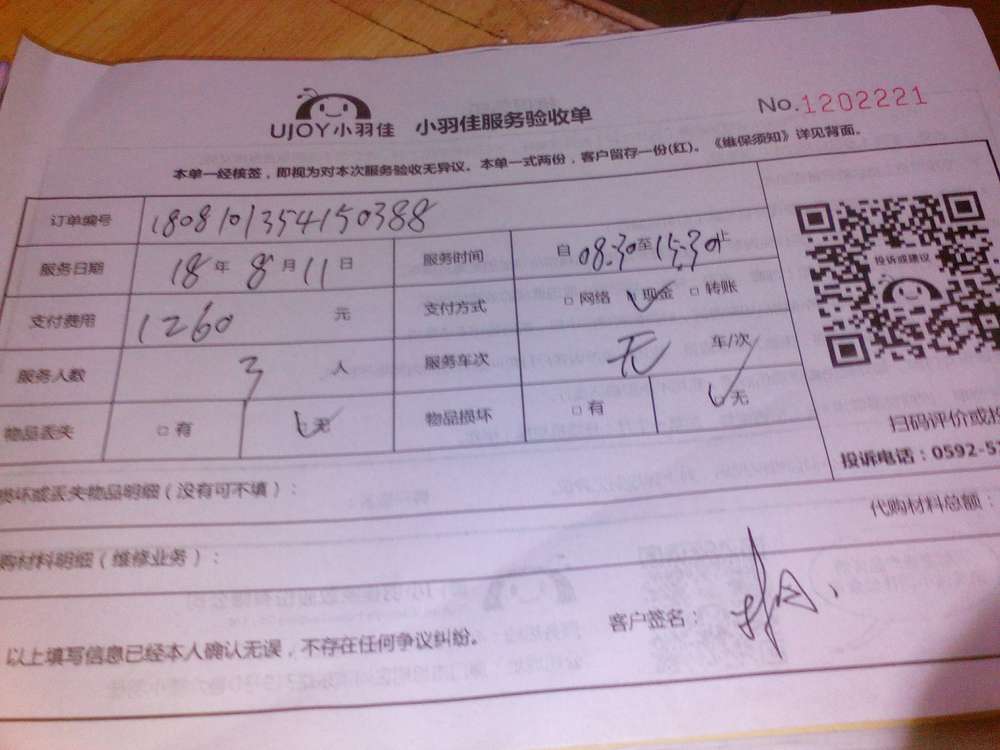 UJOY小羽佳 小羽佳服务验收单 No.1202221
本单一经核签，即视为对本次服务验收无异议。本单一式两份，客户留存一份(红)。《维保须知》详见背面。
订单编号 180810135415０388
服务日期 18 年 8 月 11 日 服务时间 自 08:30 至 15:30 止
支付费用 1260 元 支付方式 □ 网络 ✓ 现金 □ 转账
服务人数 3 人 服务车次 无 车/次
物品丢失 □ 有 ✓ 无 物品损坏 □ 有 ✓ 无
投诉或建议
扫码评价或投
投诉电话：0592-5
损坏或丢失物品明细（没有可不填）：
代购材料总额：
购材料明细（维修业务）：
以上填写信息已经本人确认无误，不存在任何争议纠纷。 客户签名：